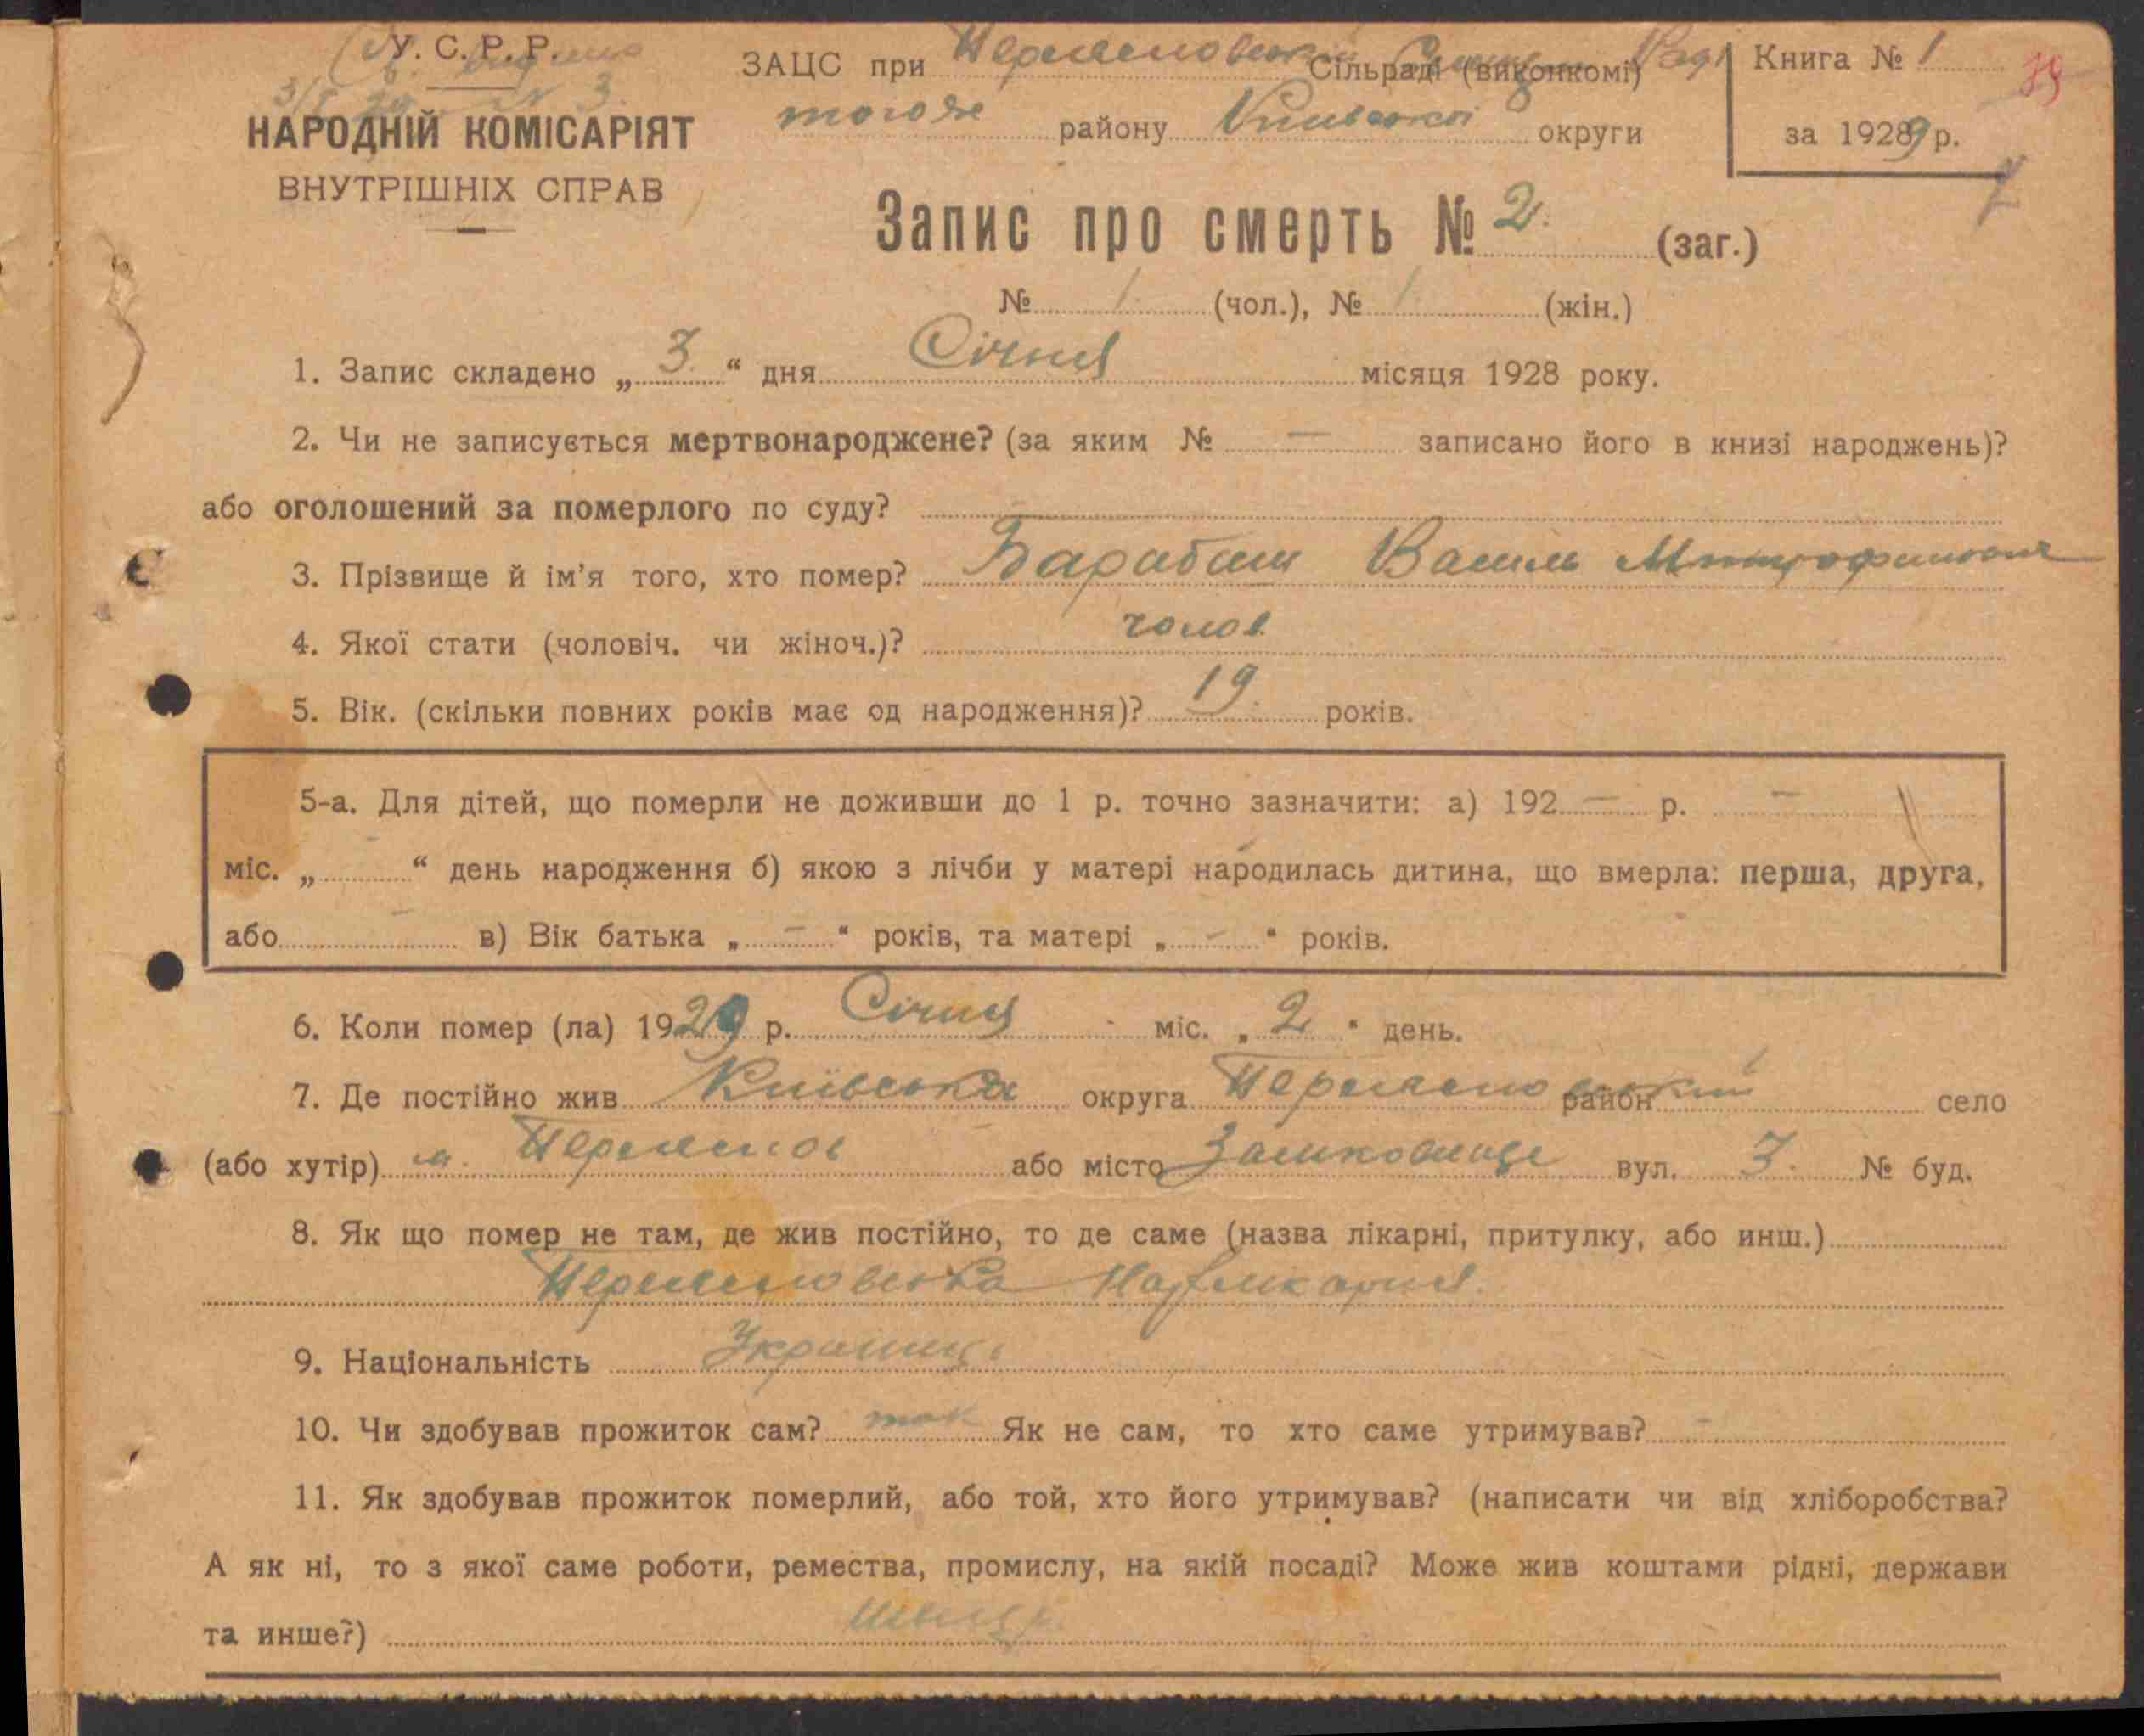 У. С. Р. Р.
НАРОДНІЙ КОМІСАРІЯТ
ВНУТРІШНІХ СПРАВ
ЗАЦС при Сільраді (виконкомі)
тогож району Київської округи
Книга № 1
за 19289 р.
39
Запис про смерть № 2. (заг.)
№ 1. (чол.), № 1. (жін.)
1. Запис складено „ 3. “ дня Січня місяця 1928 року.
2. Чи не записується мертвонароджене? (за яким № — записано його в книзі народжень)?
або оголошений за померлого по суду?
3. Прізвище й ім'я того, хто помер? Барабаш Василь Митрофанович
4. Якої стати (чоловіч. чи жіноч.)? чолов.
5. Вік. (скільки повних років має од народження)? 19. років.
5-а. Для дітей, що померли не доживши до 1 р. точно зазначити: а) 192 — р. —
міс. „ “ день народження б) якою з лічби у матері народилась дитина, що вмерла: перша, друга,
або — в) Вік батька „ — “ років, та матері „ — “ років.
6. Коли помер (ла) 1929 р. Січня міс. „ 2 “ день.
7. Де постійно жив Київська округа район село
(або хутір) м. або місто вул. 3. № буд.
8. Як що помер не там, де жив постійно, то де саме (назва лікарні, притулку, або инш.)
9. Національність Українець
10. Чи здобував прожиток сам? так Як не сам, то хто саме утримував? -
11. Як здобував прожиток померлий, або той, хто його утримував? (написати чи від хліборобства?
А як ні, то з якої саме роботи, ремества, промислу, на якій посаді? Може жив коштами рідні, держави
та инше?)